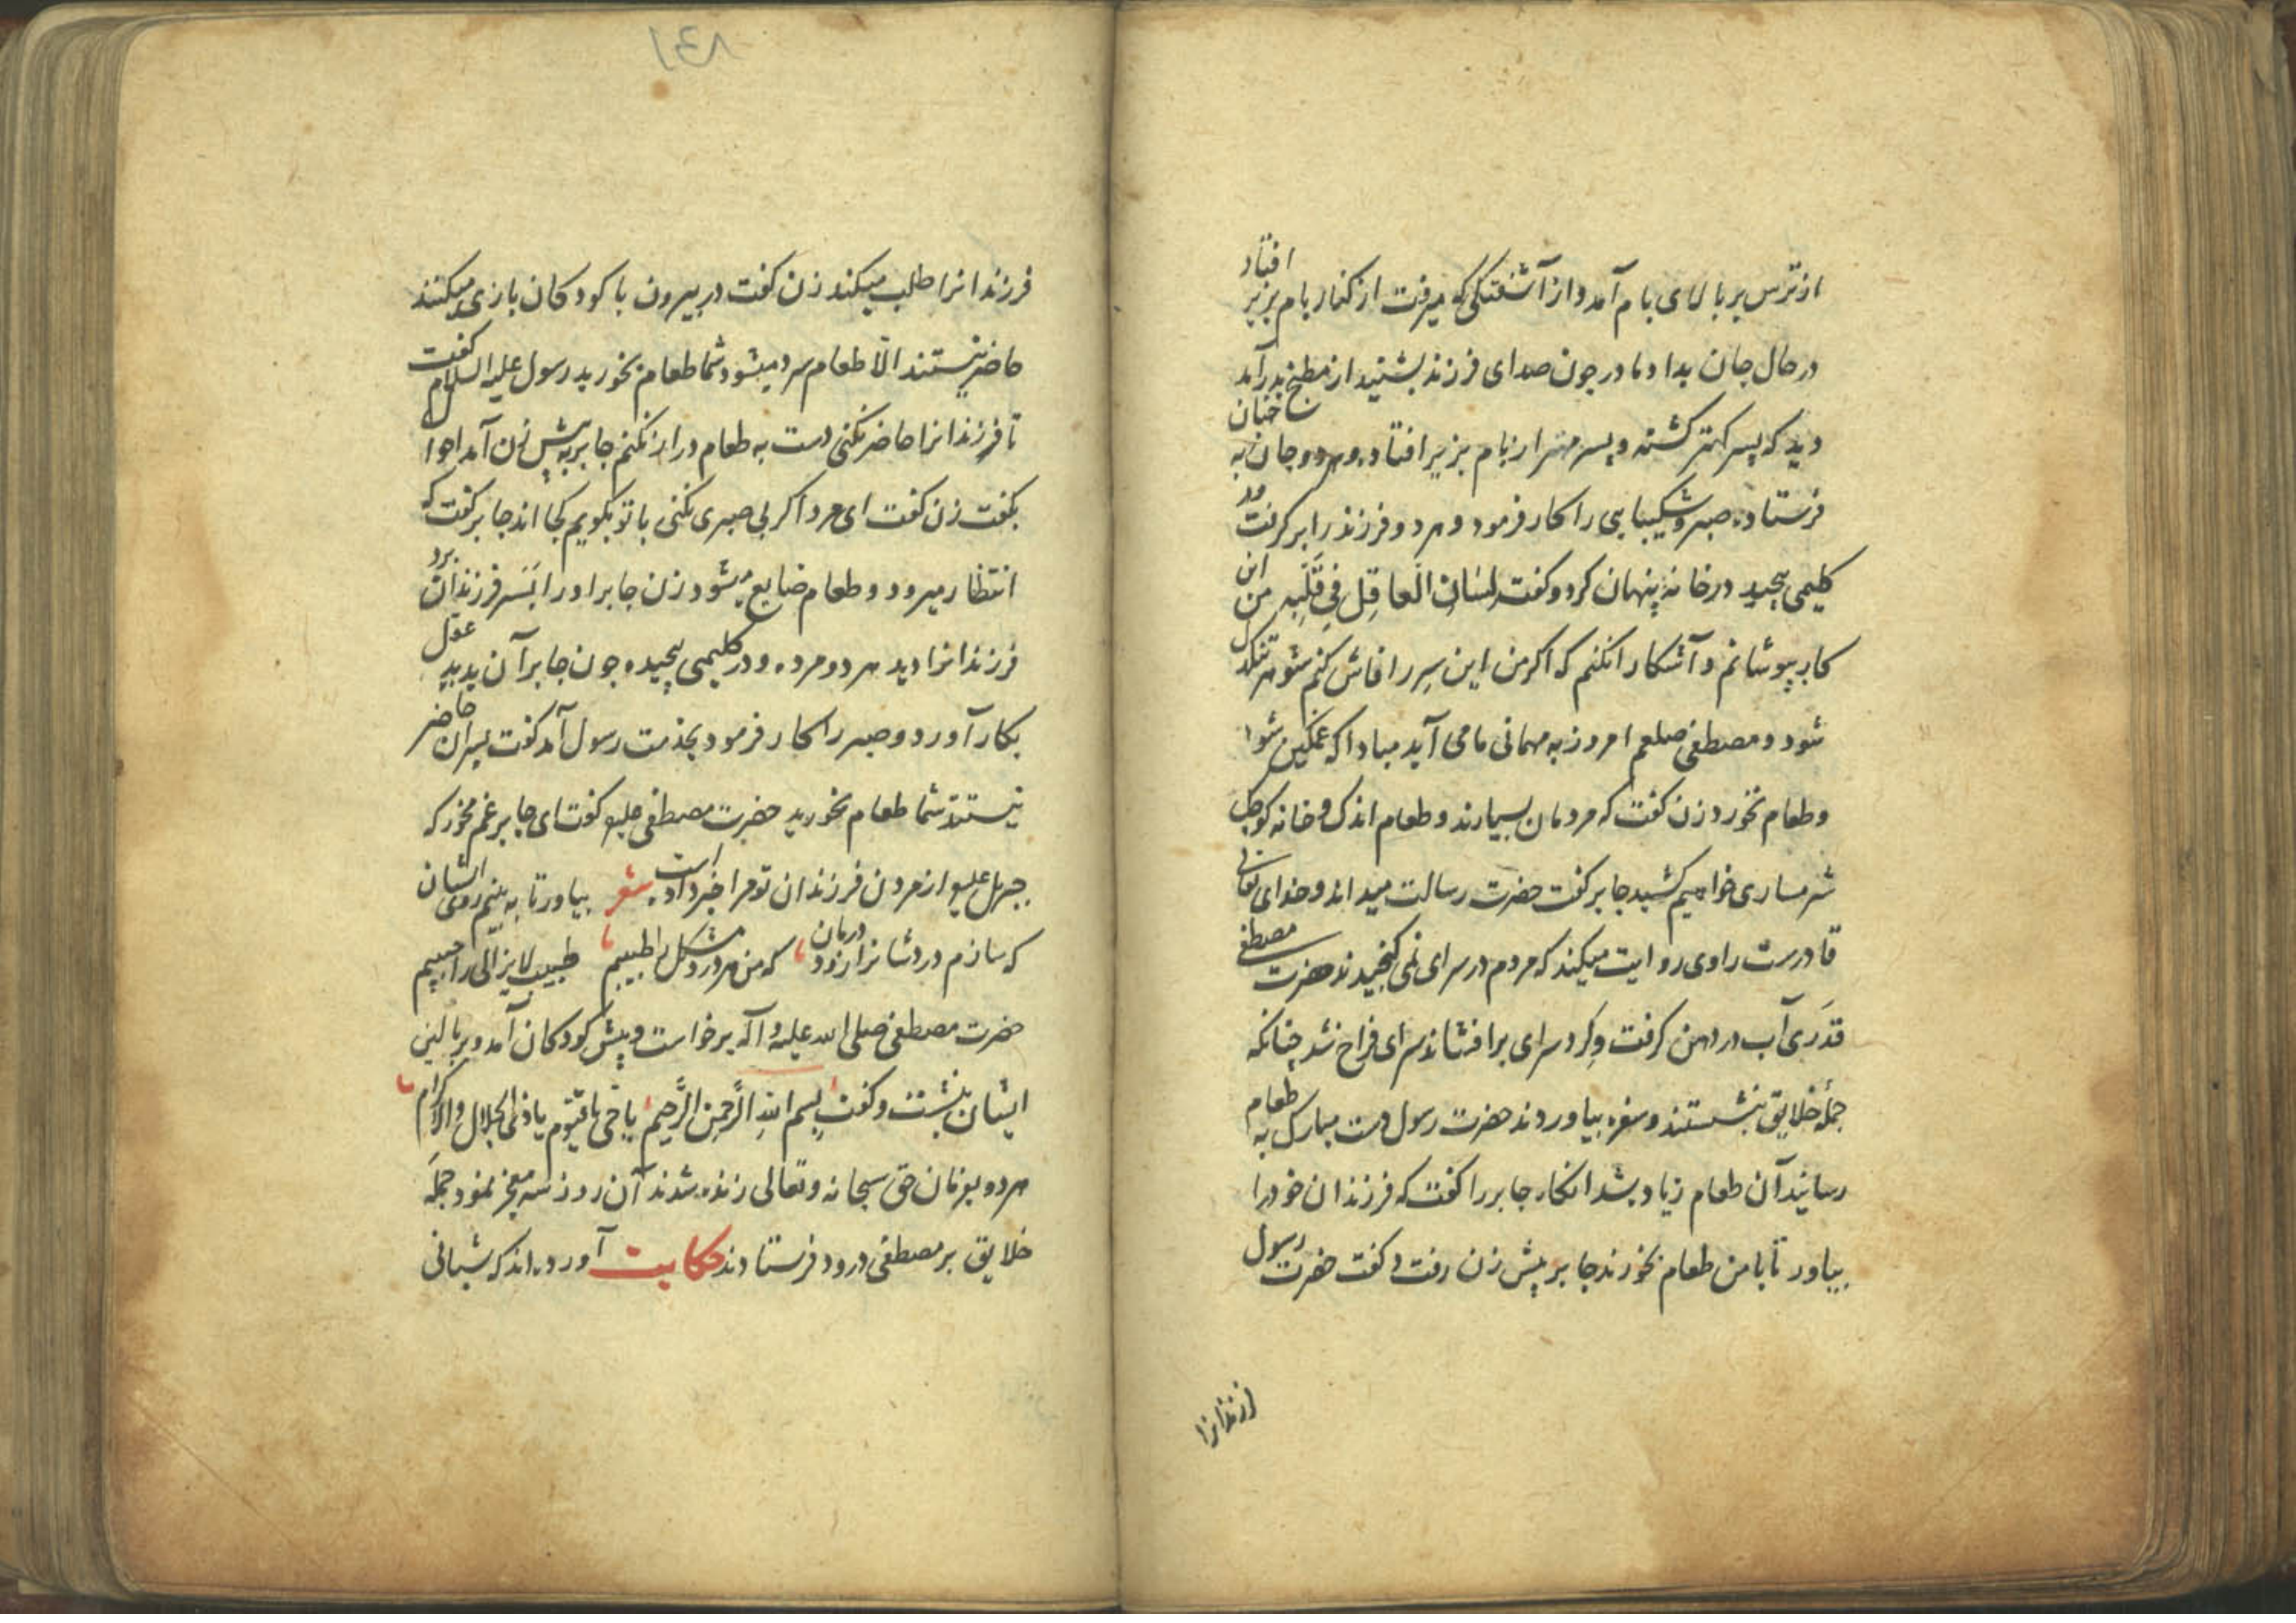 از ترس بر بالای بام آمد و از آشفتگی که میرفت از کنار بام بزیر افتاد
در حال جان بداد مادر چون صدای فرزند بشنید از مطبخ بدر آمد
دید که پسر کهتر کشته و پسر مهتر از بام بزیر افتاده و هر دو جان به جنان
فرستاده صبر و شکیبایی را کار فرمود و هر دو فرزند را بر گرفت و در
کلیمی پیچید در خانه پنهان کرد و گفت لِسَانِ الْعاقِل فِي قَلْبِه من این
کار بپوشانم و آشکارا نکنم که اگر من این سِر را فاش کنم شوهر تنکدل
شود و مصطفی صلعم امروز به مهمانی ما می آید مبادا که غمکین شود
و طعام نخورد زن گفت که مردمان بسیارند و طعام اندک و خانه کوچک
شرمساری خواهیم کشید جابر گفت حضرت رسالت میداند و خدای تعالی
قادرست راوی روایت میکند که مردم در سرای نمی گنجیدند حضرت مصطفی
قَدَری آب در دهن گرفت و گرد سرای بر افشاند سرای فراخ شد چنانکه
جمله خلایق بنشستند و سفره بیاوردند حضرت رسول دست مبارک به طعام
رسانید آن طعام زیاد بشد انکاه جابر را گفت که فرزندان خود را
بیاور تا با من طعام بخورند جابر پیش زن رفت و گفت حضرت رسول
فرزندانرا
۱۴۸
فرزندانرا طلب میکند زن گفت در بیرون با کودکان بازی میکنند
حاضر نیستند الّا طعام سرد میشود شما طعام بخورید رسول علیه السلام گفت
تا فرزندانرا حاضر نکنی دست به طعام دراز نکنم جابر به پیش زن آمد احوال
بگفت زن گفت ای مرد اگر بی صبری نکنی با تو بگویم کجا اند جابر گفت که
انتظار میرود و طعام ضایع میشود زن جابر او را بَسَر فرزندان برد
فرزندانرا دید هر دو مرده و در کلیمی پیچیده چون جابر آن بدید عقل
بکار آورد و صبر را کار فرمود بخدمت رسول آمد گفت پسران حاضر
نیستند شما طعام بخورید حضرت مصطفی علیه گفت ای جابر غم مخور که
جبریل علیه از مردن فرزندان تو مرا خبر داده است شعر بیاور تا به بینم روی ایشان
که سازم دردشانرا زود درمان که من هر درد مشکل را طبیبم طبیب لایزالی را حبیبم
حضرت مصطفی صلی الله علیه و آله برخاست و پیش کودکان آمد و بر بالین
ایشان بنشست و گفت بِسمِ اللهِ الرَّحمنِ الرَّحیمِ یا حی یا قیّوم یا ذی الجلال والاکرام
هر دو بفرمان حق سبحانه و تعالی زنده شدند آن روز سه معجز نمود جمله
خلایق بر مصطفی درود فرستادند حکایت آورده اند که شبانی